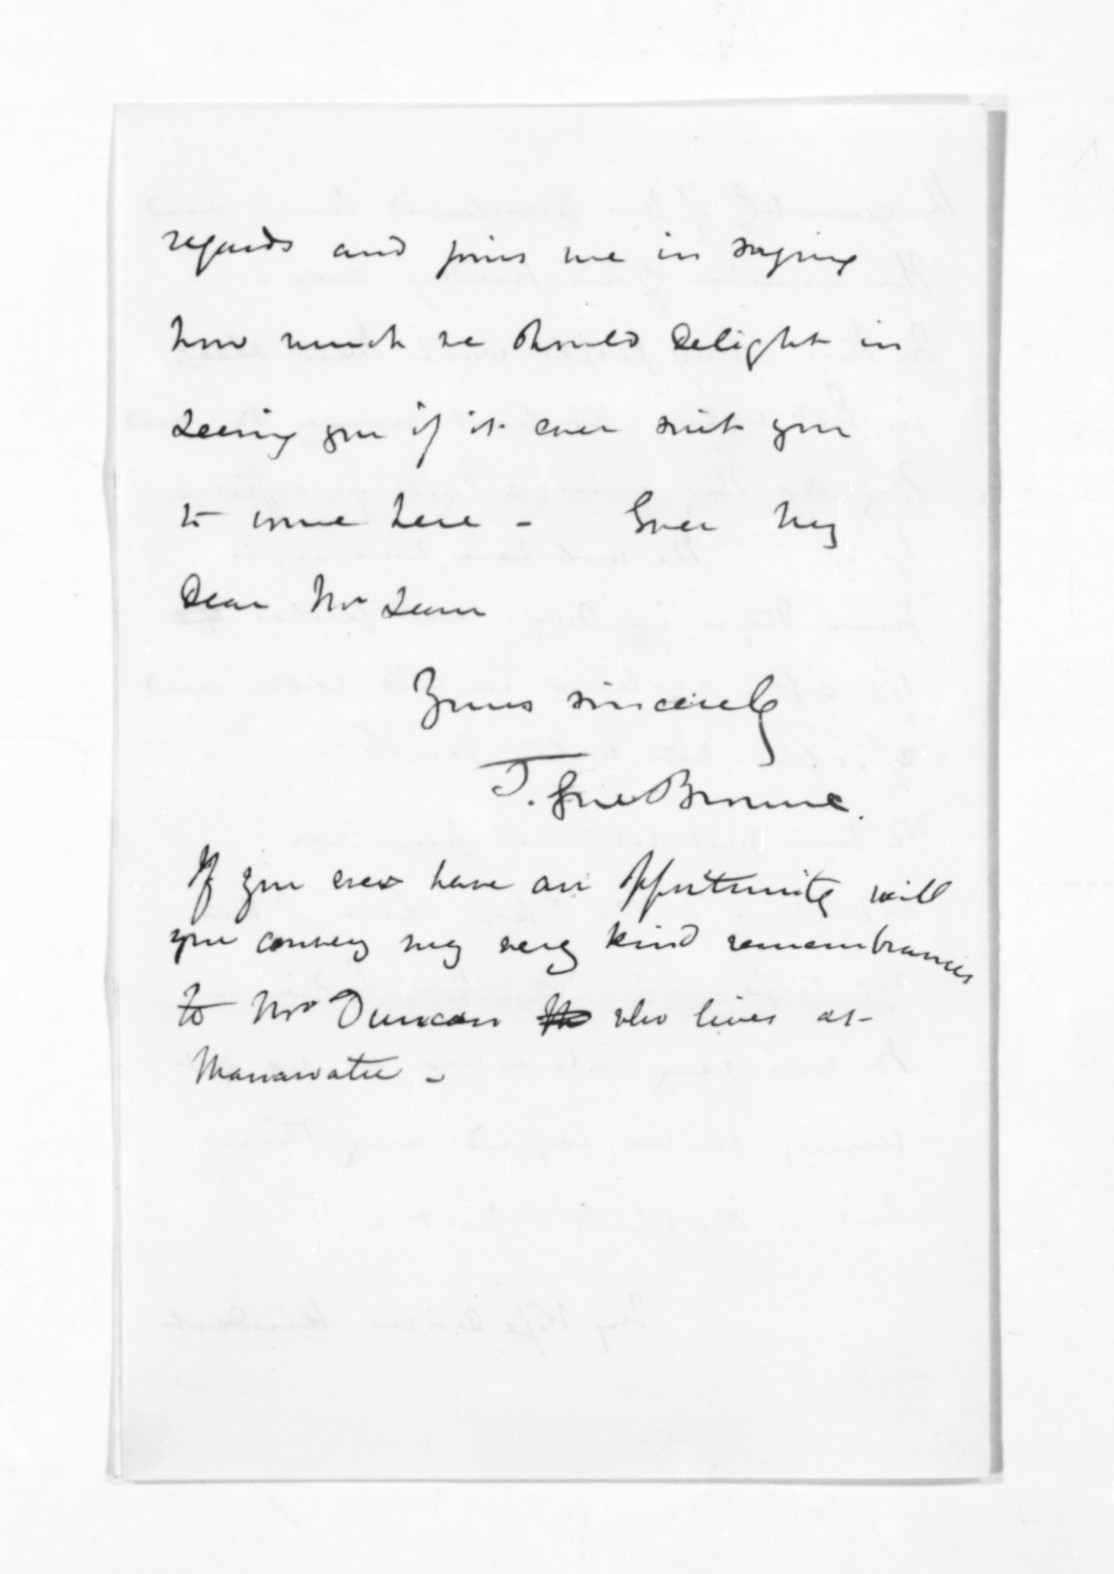 regards and joins me in saying
how much we should delight in
seeing you if it ever suit you
to come here - Ever My
Dear McLean
Yours sincerely
T. Gore Browne.
If you ever have an opportunity will
you convey my very kind remembrances
to Mr Duncan who lives at
Manawatu -